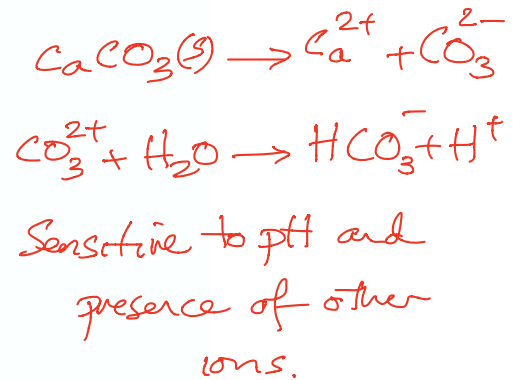 CaCO₃(s) → Ca²⁺ + CO₃²⁻
CO₃²⁺ + H₂O → HCO₃⁻ + H⁺
Sensitive to pH and
presence of other
ions.